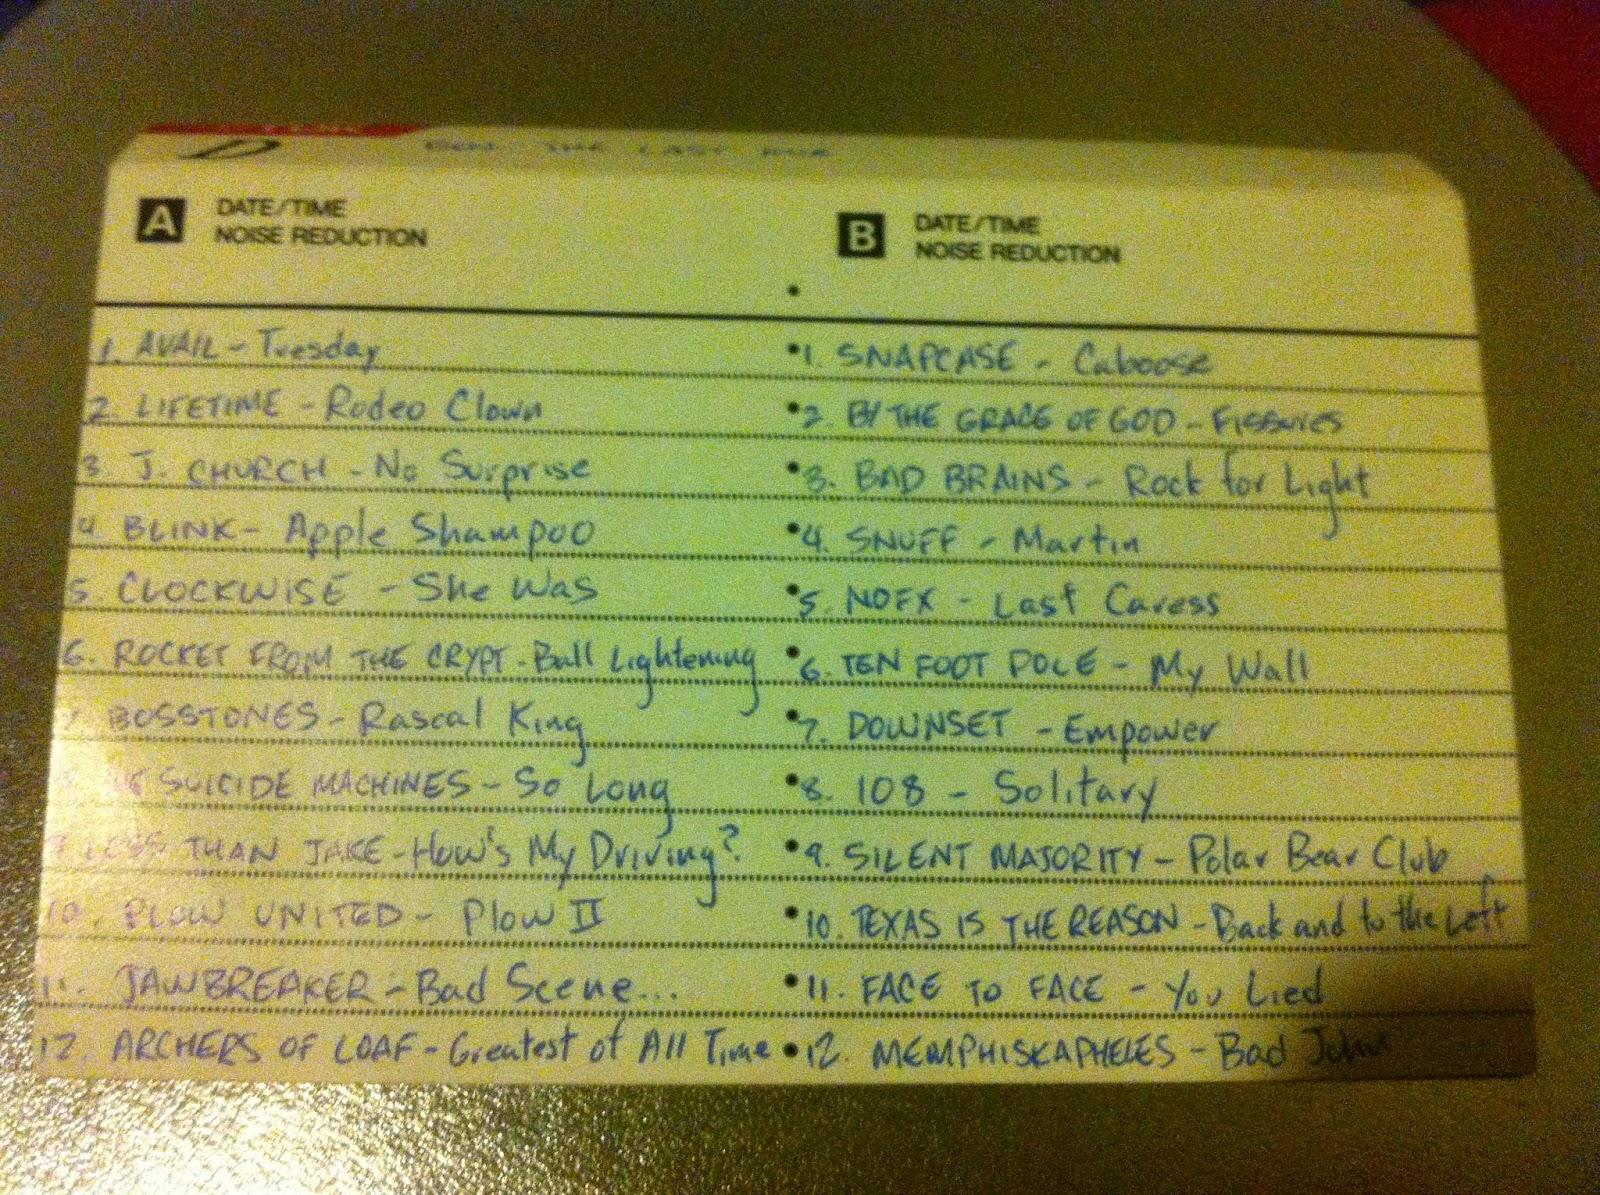 D THE LAST
A DATE/TIME
NOISE REDUCTION
B DATE/TIME
NOISE REDUCTION
1. AVAIL - Tuesday
2. LIFETIME - Rodeo Clown
3. J. CHURCH - No Surprise
4. BLINK - Apple Shampoo
5. CLOCKWISE - She Was
6. ROCKET FROM THE CRYPT - Ball Lightening
7. BOSSTONES - Rascal King
SUICIDE MACHINES - So Long
9. LESS THAN JAKE - How's My Driving?
10. PLOW UNITED - Plow II
11. JAWBREAKER - Bad Scene...
12. ARCHERS OF LOAF - Greatest of All Time
1. SNAPCASE - Caboose
2. BY THE GRACE OF GOD - Fissures
3. BAD BRAINS - Rock for Light
4. SNUFF - Martin
5. NOFX - Last Caress
6. TEN FOOT POLE - My Wall
7. DOWNSET - Empower
8. 108 - Solitary
9. SILENT MAJORITY - Polar Bear Club
10. TEXAS IS THE REASON - Back and to the Left
11. FACE TO FACE - You Lied
12. MEMPHISKAPHELES - Bad John